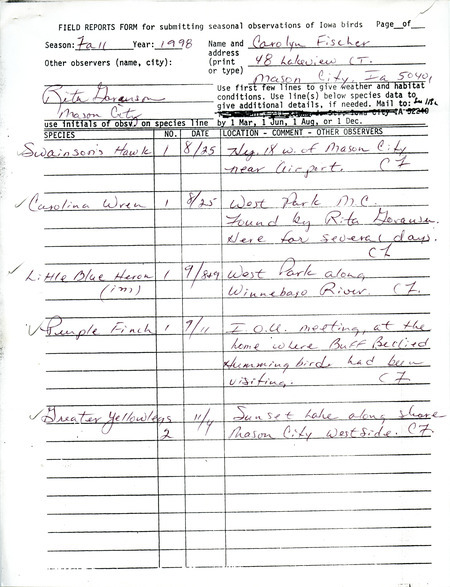 FIELD REPORTS FORM for submitting seasonal observations of Iowa birds Page__of__
Season: Fall Year: 1998 Name and Carolyn Fischer
address 48 Lakeview CT.
Other observers (name, city): (print
or type) Mason City, Ia 50401
Rita Goranson
Mason City
Use first few lines to give weather and habitat
conditions. Use line(s) below species data to
give additional details, if needed. Mail to:
use initials of obsv. on species line by 1 Mar, 1 Jun, 1 Aug, or 1 Dec.
SPECIES NO. DATE LOCATION - COMMENT - OTHER OBSERVERS
Swainson's Hawk 1 8/25 Hy. 18 w. of Mason City
near Airport. CF
✓ Carolina Wren 1 8/25 West Park M.C.
Found by Rita Goranson.
Here for several days.
CF
✓ Little Blue Heron 1 9/8&9 West Park along
(im) Winnebago River. CF.
✓ Purple Finch 1 9/11 I.O.U. meeting, at the
home where Buff Bellied
Hummingbird had been
visiting. CF
✓ Greater Yellowlegs 11/4 Sunset Lake along shore
2 Mason City West Side. CF.